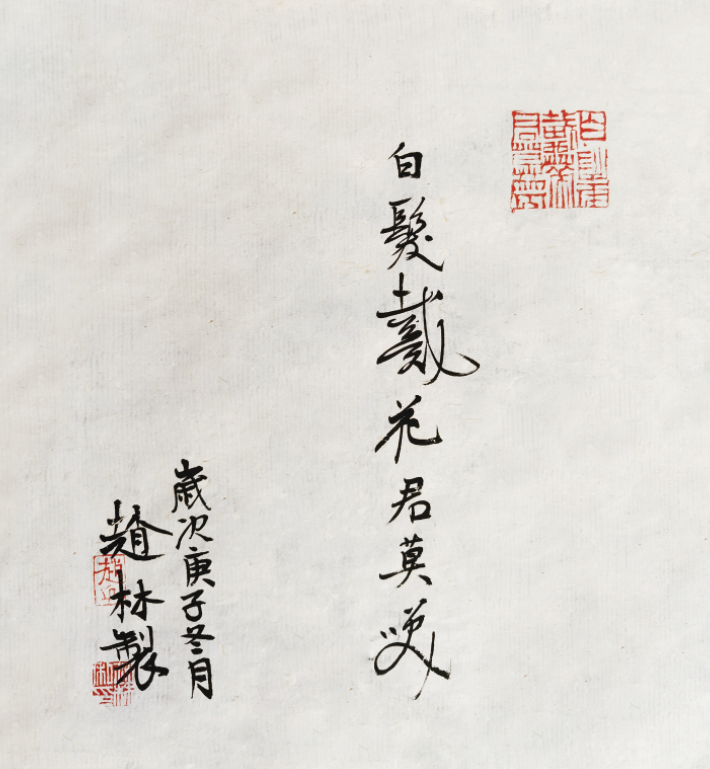 白髮戴花君莫咲
歲次庚子冬月
趙林製